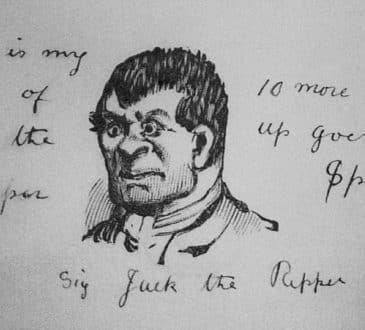 is my
of 10 more
the up goes
per
Sig Jack the Ripper